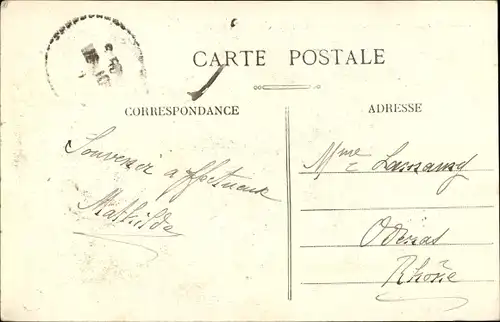 CARTE POSTALE
CORRESPONDANCE
ADRESSE
Souvenir affectueux
Mathilde
Mme
Odenas
Rhône